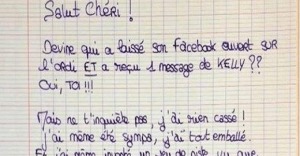 Salut Chéri !
Devine qui a laissé son Facebook ouvert SUR
l'ordi ET a reçu 1 message de KELLY ??
Oui, TOI !!!
Mais ne t'inquiète pas, j'ai rien cassé !
j'ai même été sympa, j'ai tout emballé.
Et j'ai même un jeu de piste vu que